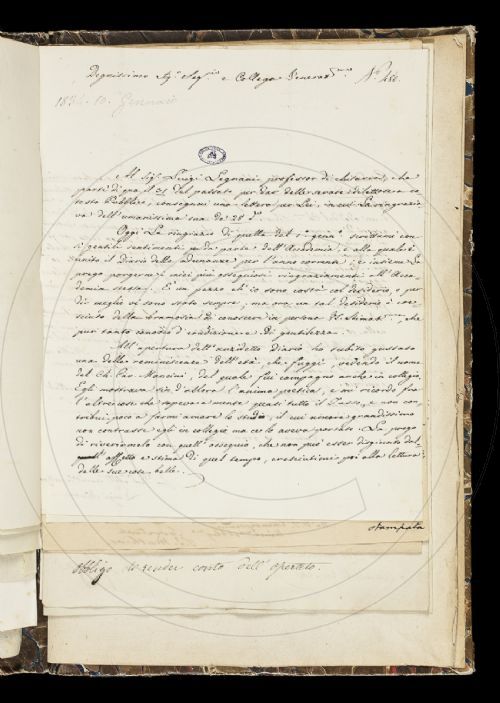 Degnissimo Sigr Segrio e Collega Venerandmo No 456
1834. 10. Gennaio
Al Sigr Luigi Legnani professor di chitarra, che
partì di qua il 31 del passato per dar delle serate di lettere a co
testo Pubblico, consegnai una lettera per Lei, in cui La ringrazia
va dell'umanissima sua de' 28 do
Oggi La ringrazio di quella del 1o genno scrittami con
sì gentili sentimenti per parte dell'Accademia, e alla quale
unito il diario delle adunanze per l'anno corrente; e insieme La
prego porgerne i miei più ossequiosi ringraziamenti all'Acca
demia stessa. È un pezzo ch'io sono costì col desiderio, e per
dir meglio vi sono stato sempre, ma ora un tal desiderio è cre
sciuto dalla bramosia di conoscere in persona
pur tanto erudito
All'apertura dell'anzidetto diario ho subito gustato
una delle reminiscenze dell'età, che fuggì, vedendo il nome
del Ch. Cav. Mancini, del quale fui compagno anche in collegio.
Egli mostrava sin d'allora l'anima poetica, e mi ricordo fra
l'altre cose che sapeva a mente quasi tutto il Tasso, e non con
tribuì poco a farmi amare lo studio, il cui amore grandissimo
non contrasse egli in collegio ma ce lo aveva portato. La prego
di riverirmelo con quell'ossequio, che non può esser disgiunto dal
l'affetto e stima di quel tempo, cresciutimi poi alla lettura
delle sue cose belle.
stampata
obbligo di render conto dell'operato.